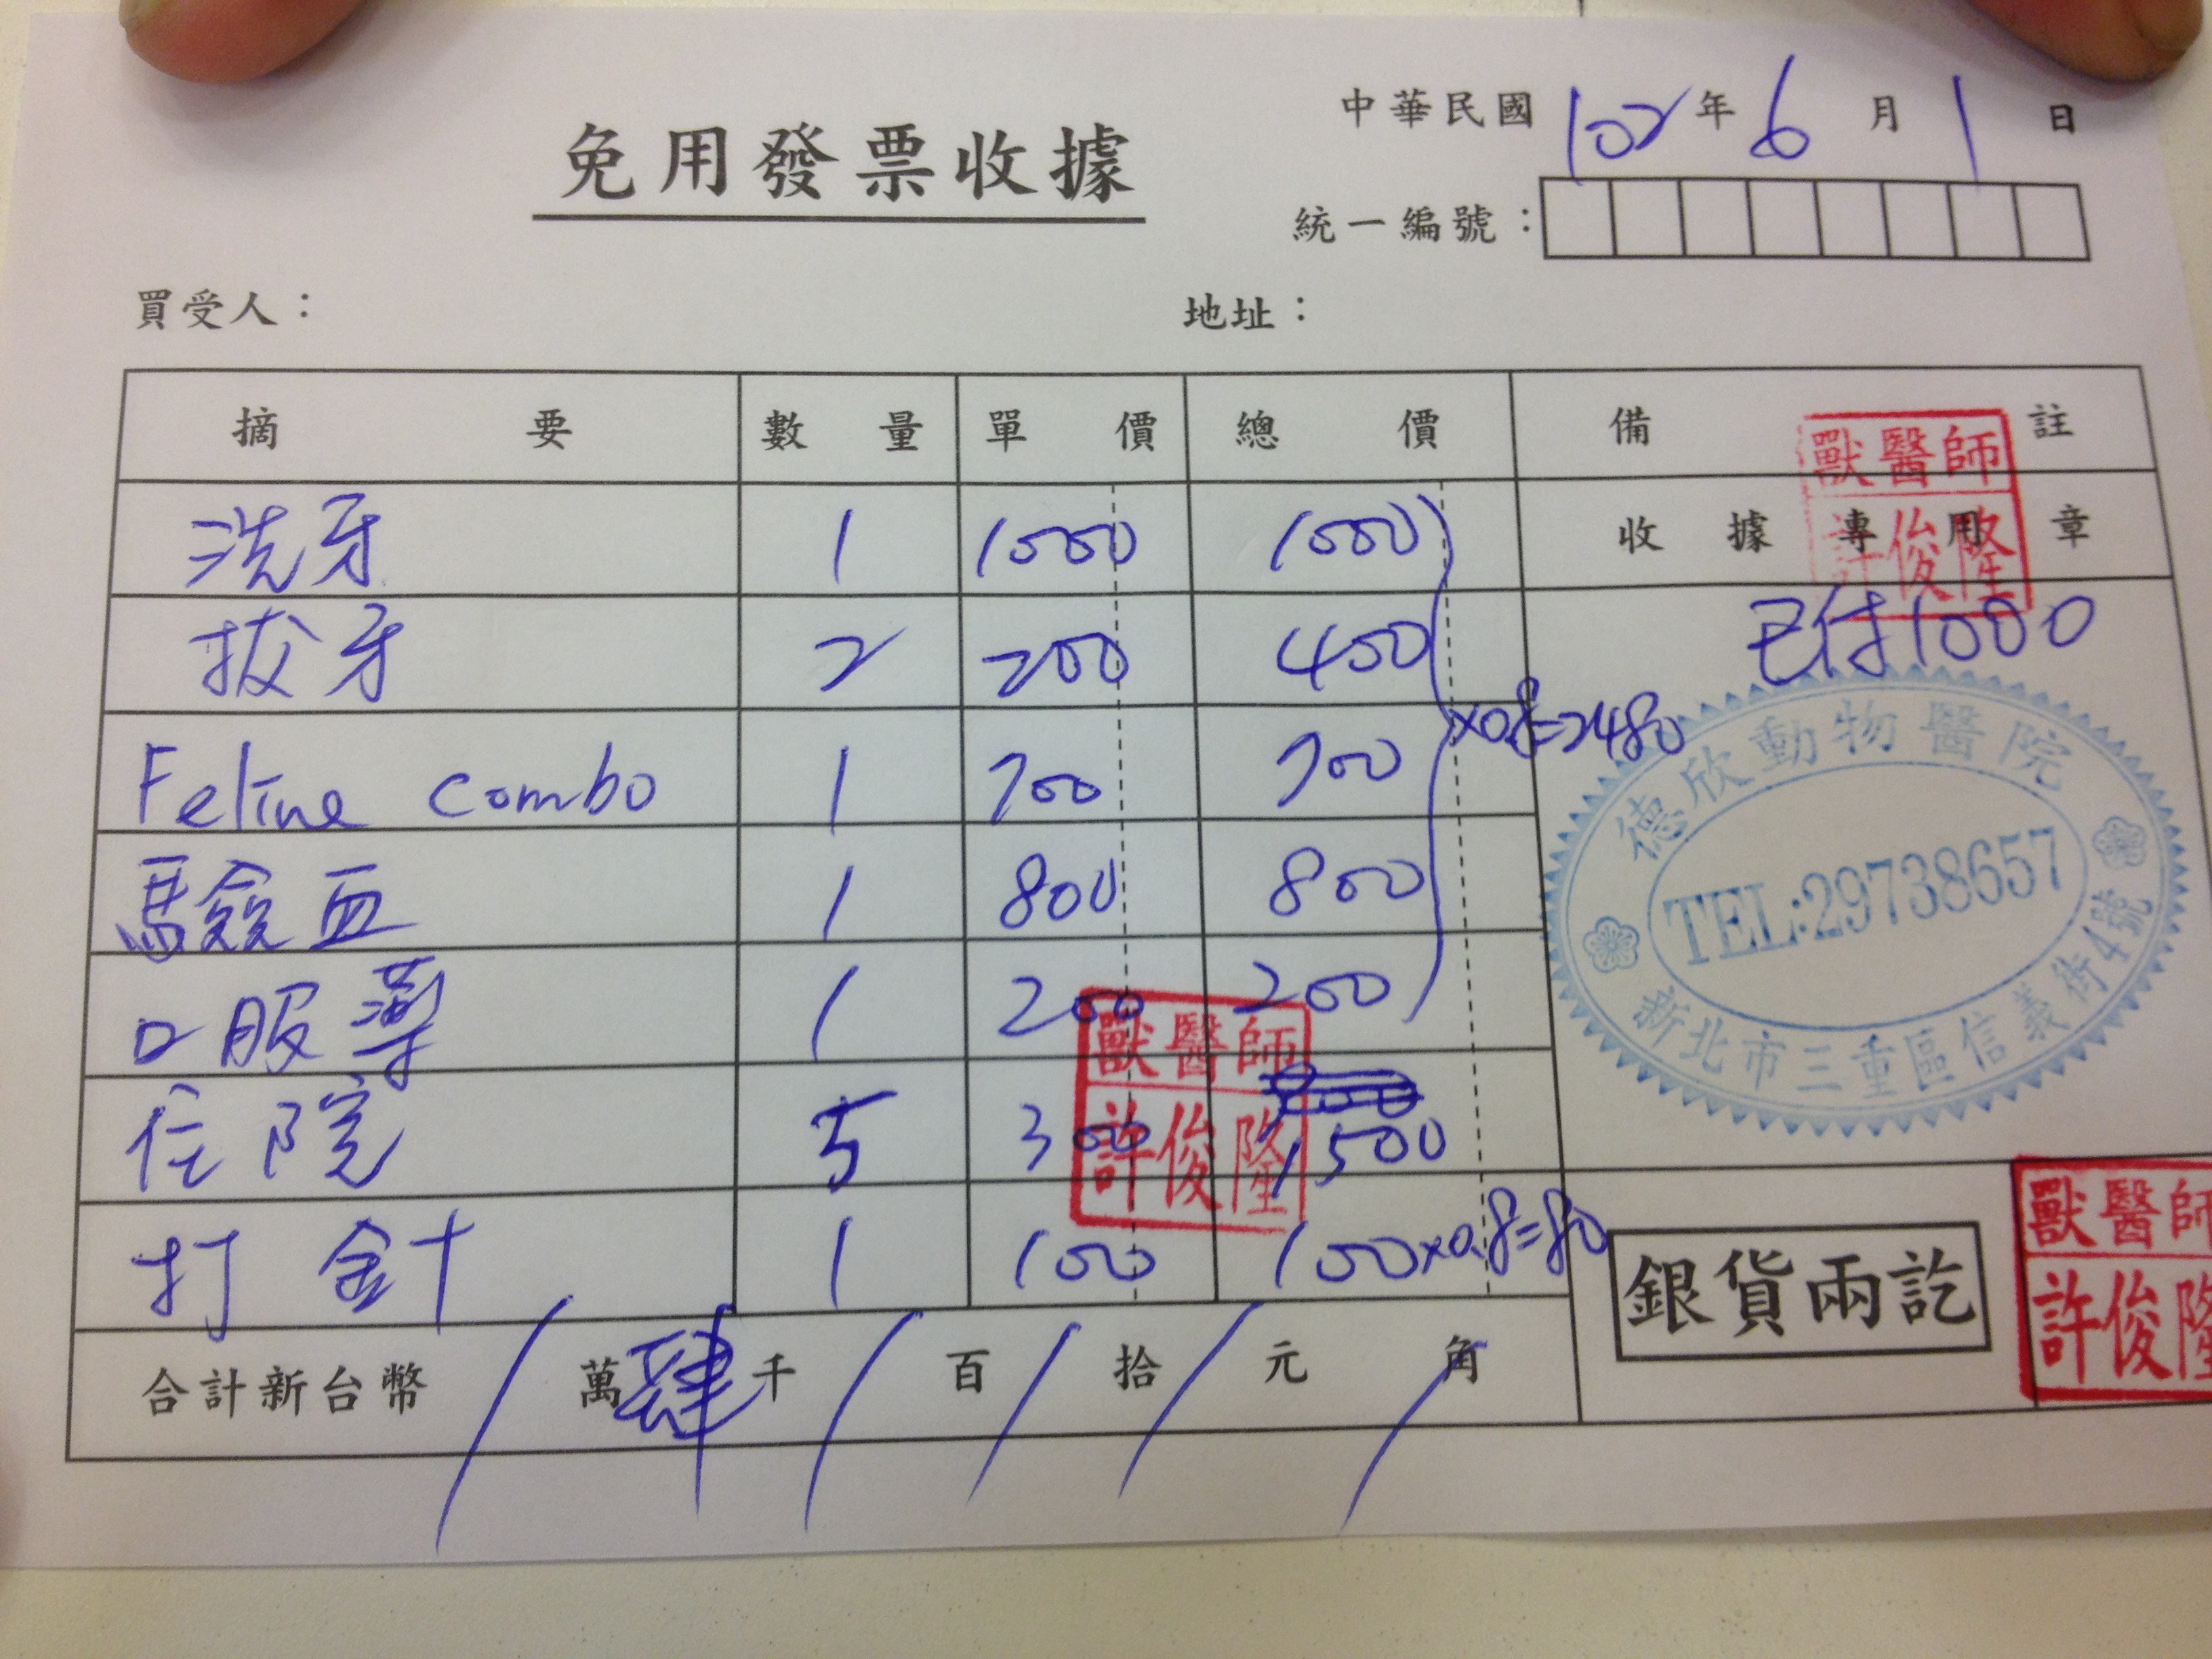 中華民國 102 年 6 月 1 日
免用發票收據
統一編號：
買受人：
地址：
摘要 數量 單價 總價 備註
洗牙 1 1000 1000
收據專用章
獸醫師
許俊隆
拔牙 2 200 400
已付1000
Feline combo 1 700 700
×0.8=2480
驗血 1 800 800
口服藥 1 200 200
德欣動物醫院
TEL:29738657
新北市三重區信義街4號
獸醫師
許俊隆
住院 5 300 1500
打針 1 100 100×0.8=80
合計新台幣 / 萬 肆 千 / 百 / 拾 / 元 / 角
銀貨兩訖
獸醫師
許俊隆